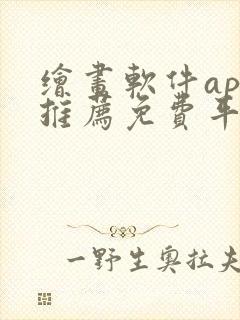 繪畫軟件ap
推薦免費平
一野生奧拉夫